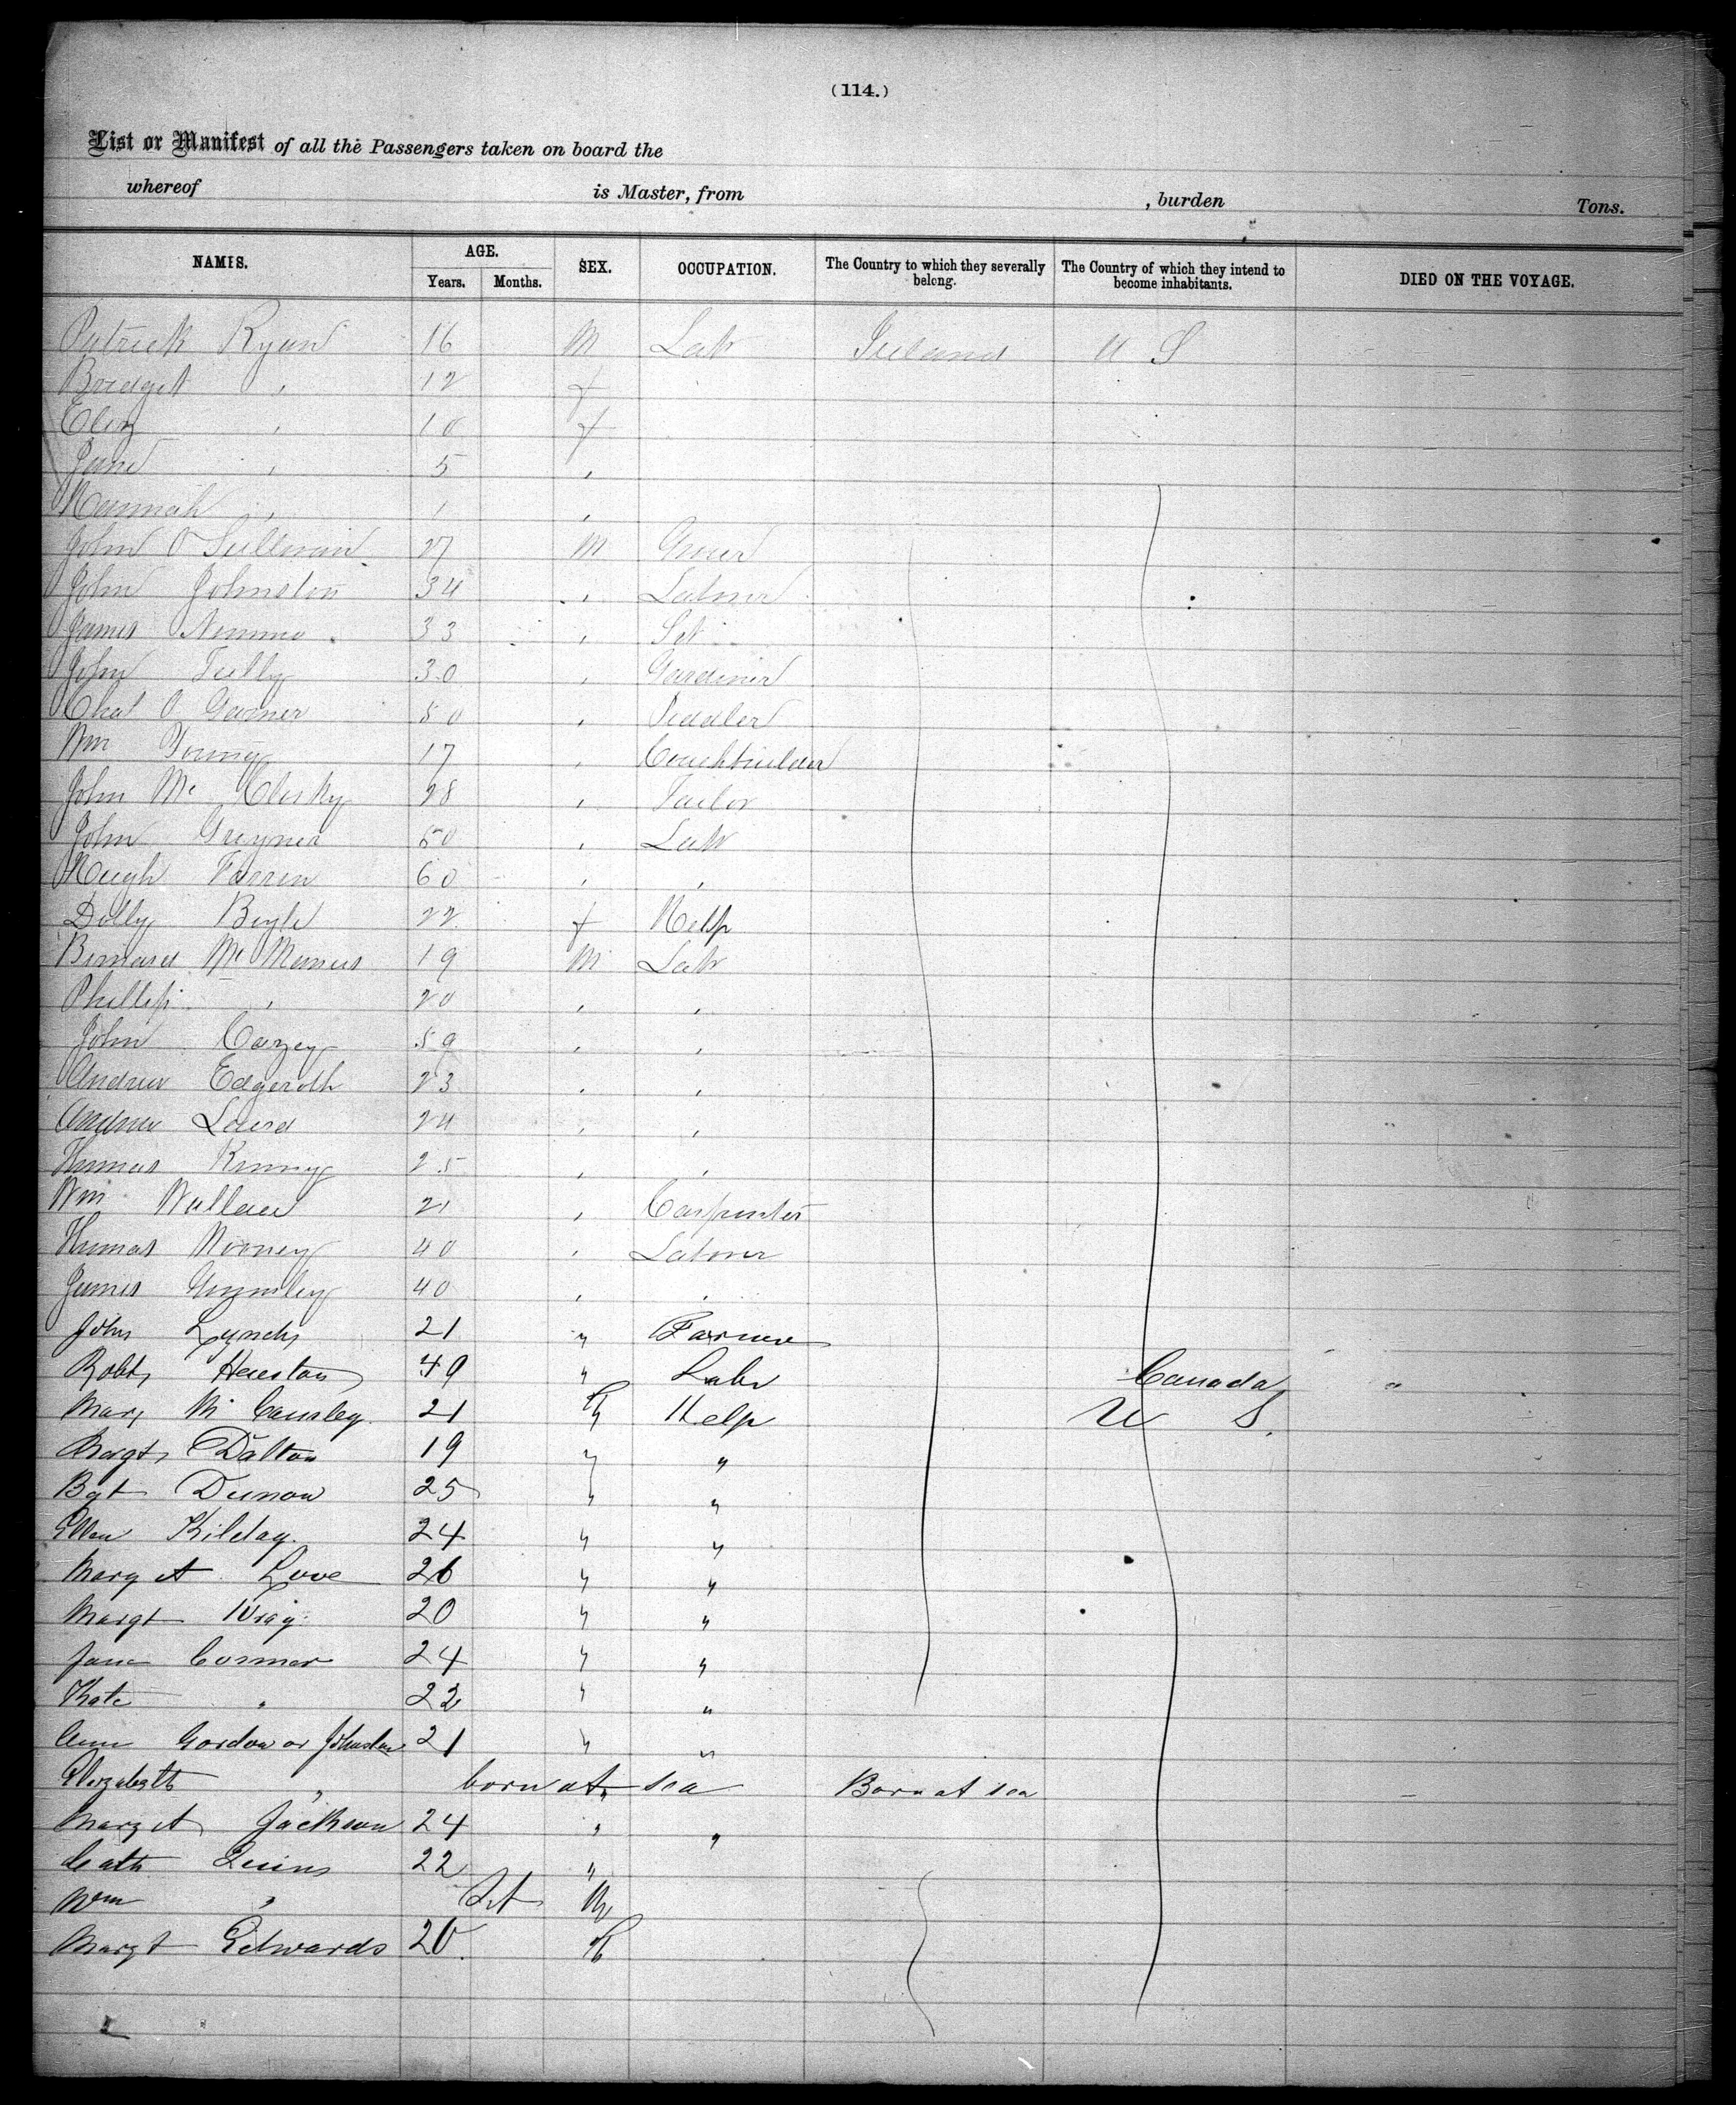 (114.)
List or Manifest of all the Passengers taken on board the
whereof is Master, from , burden Tons.
NAMES. AGE. Years. Months. SEX. OCCUPATION. The Country to which they severally belong. The Country of which they intend to become inhabitants. DIED ON THE VOYAGE.
Patrick Ryan 16 M Labr Ireland U S
Bridget " 12 f
Eliz " 10 f
Jane " 5 "
Hannah " 1 "
John O Sullivan 27 M Grocer
John Johnston 34 " Labourer
James Nimmo 33 "
John Tully 30 " Gardiner
Chas O Garner 50 " Peddler
Wm Young 17 " Coachbuilder
John Mc Clusky 28 " Tailor
John Greyner 50 " Labr
Hugh Farren 60 " "
Dolly Boyle 22 f Help
Bernard Mc Manus 19 M Labr
Phillip " 20 " "
John Carzey 59 " "
Andrew Edgeroth 23 " "
Andrew Laird 24 " "
Thomas Kinny 25 " "
Wm Wallace 21 " Carpenter
Thomas Mooney 40 " Labourer
James Grimley 40 " "
John Lynch 21 " Farmer
Robt Heuston 49 " Labr Canada
Mary Mc Causley 21 F Help U S.
Margt Dalton 19 " "
Bgt Dunow 25 " "
Ellen Kilday 24 " "
Margt A Love 26 " "
Margt Wray 20 " "
Jane Cormer 24 " "
Kate " 22 " "
Ann Gordon or Johnston 21 " "
Elizabeth " born at sea Born at sea
Margt A Jackson 24 " "
Cath Quinn 22 "
Wm " Inft M
Margt Edwards 20 F